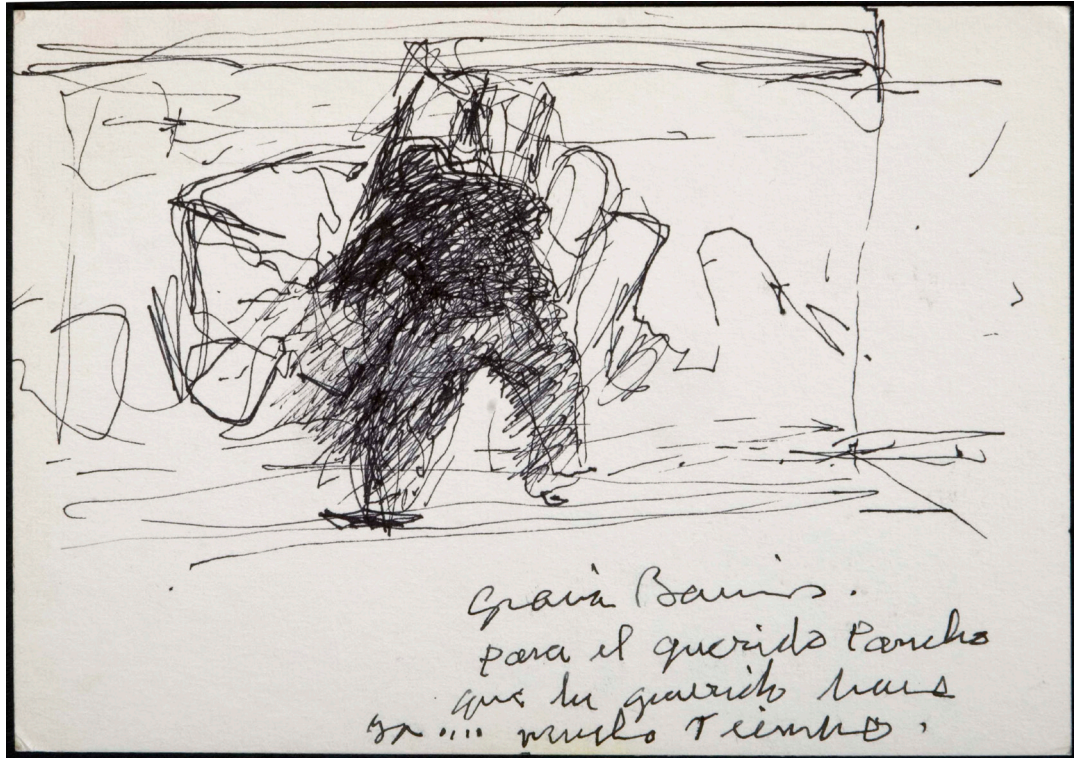 Gracia Barrios.
para el querido Pancho
que he querido hace
ya .... mucho Tiempo.